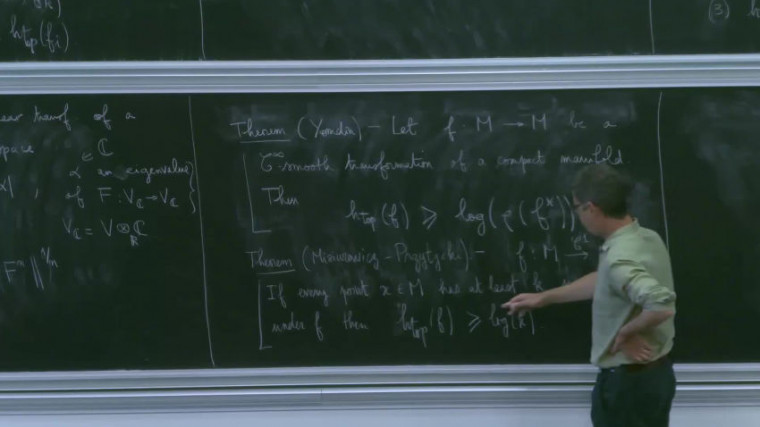 htop(fi)
(3)
ear transf of a
space
∈ ℂ
α an eigenvalue
of F : Vℂ → Vℂ }
Vℂ = V ⊗ ℂ
ℝ
Fⁿ ‖^{1/n}
Theorem (Yomdin) – Let f : M → M be a
C^∞-smooth transformation of a compact manifold
Then htop(f) ⩾ log(r(f*))
Theorem (Misiurewicz – Przytycki) – f : M →
If every point x ∈ M has at least k
under f then htop(f) ⩾ log(k).